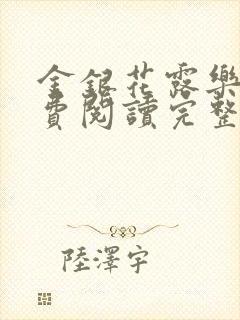 金銀花露樂
費閱讀完整
陸澤宇